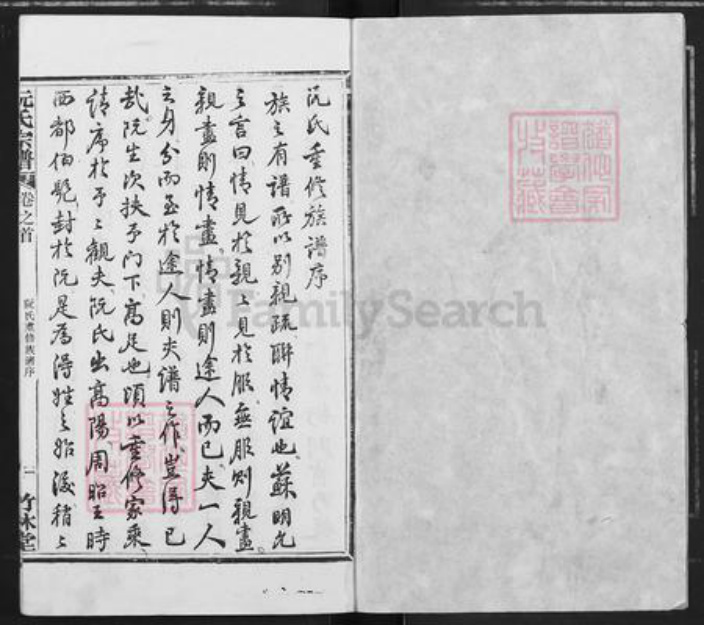 阮氏重修族譜序
族之有譜所以别親疏聯情誼也蘇明允
之言曰情見於親〻見於服無服則親盡
親盡則情盡情盡則途人而已夫一人
之身分而至於途人則夫譜之作豈得已
哉阮生次扶予門下高足也頃以重修家乘
請序於予〻觀夫阮氏出高陽周昭王時
西都伯髡封於阮是為得姓之始漢稽〻
阮氏宗譜 卷之首
阮氏重修族譜序
竹林堂
FamilySearch